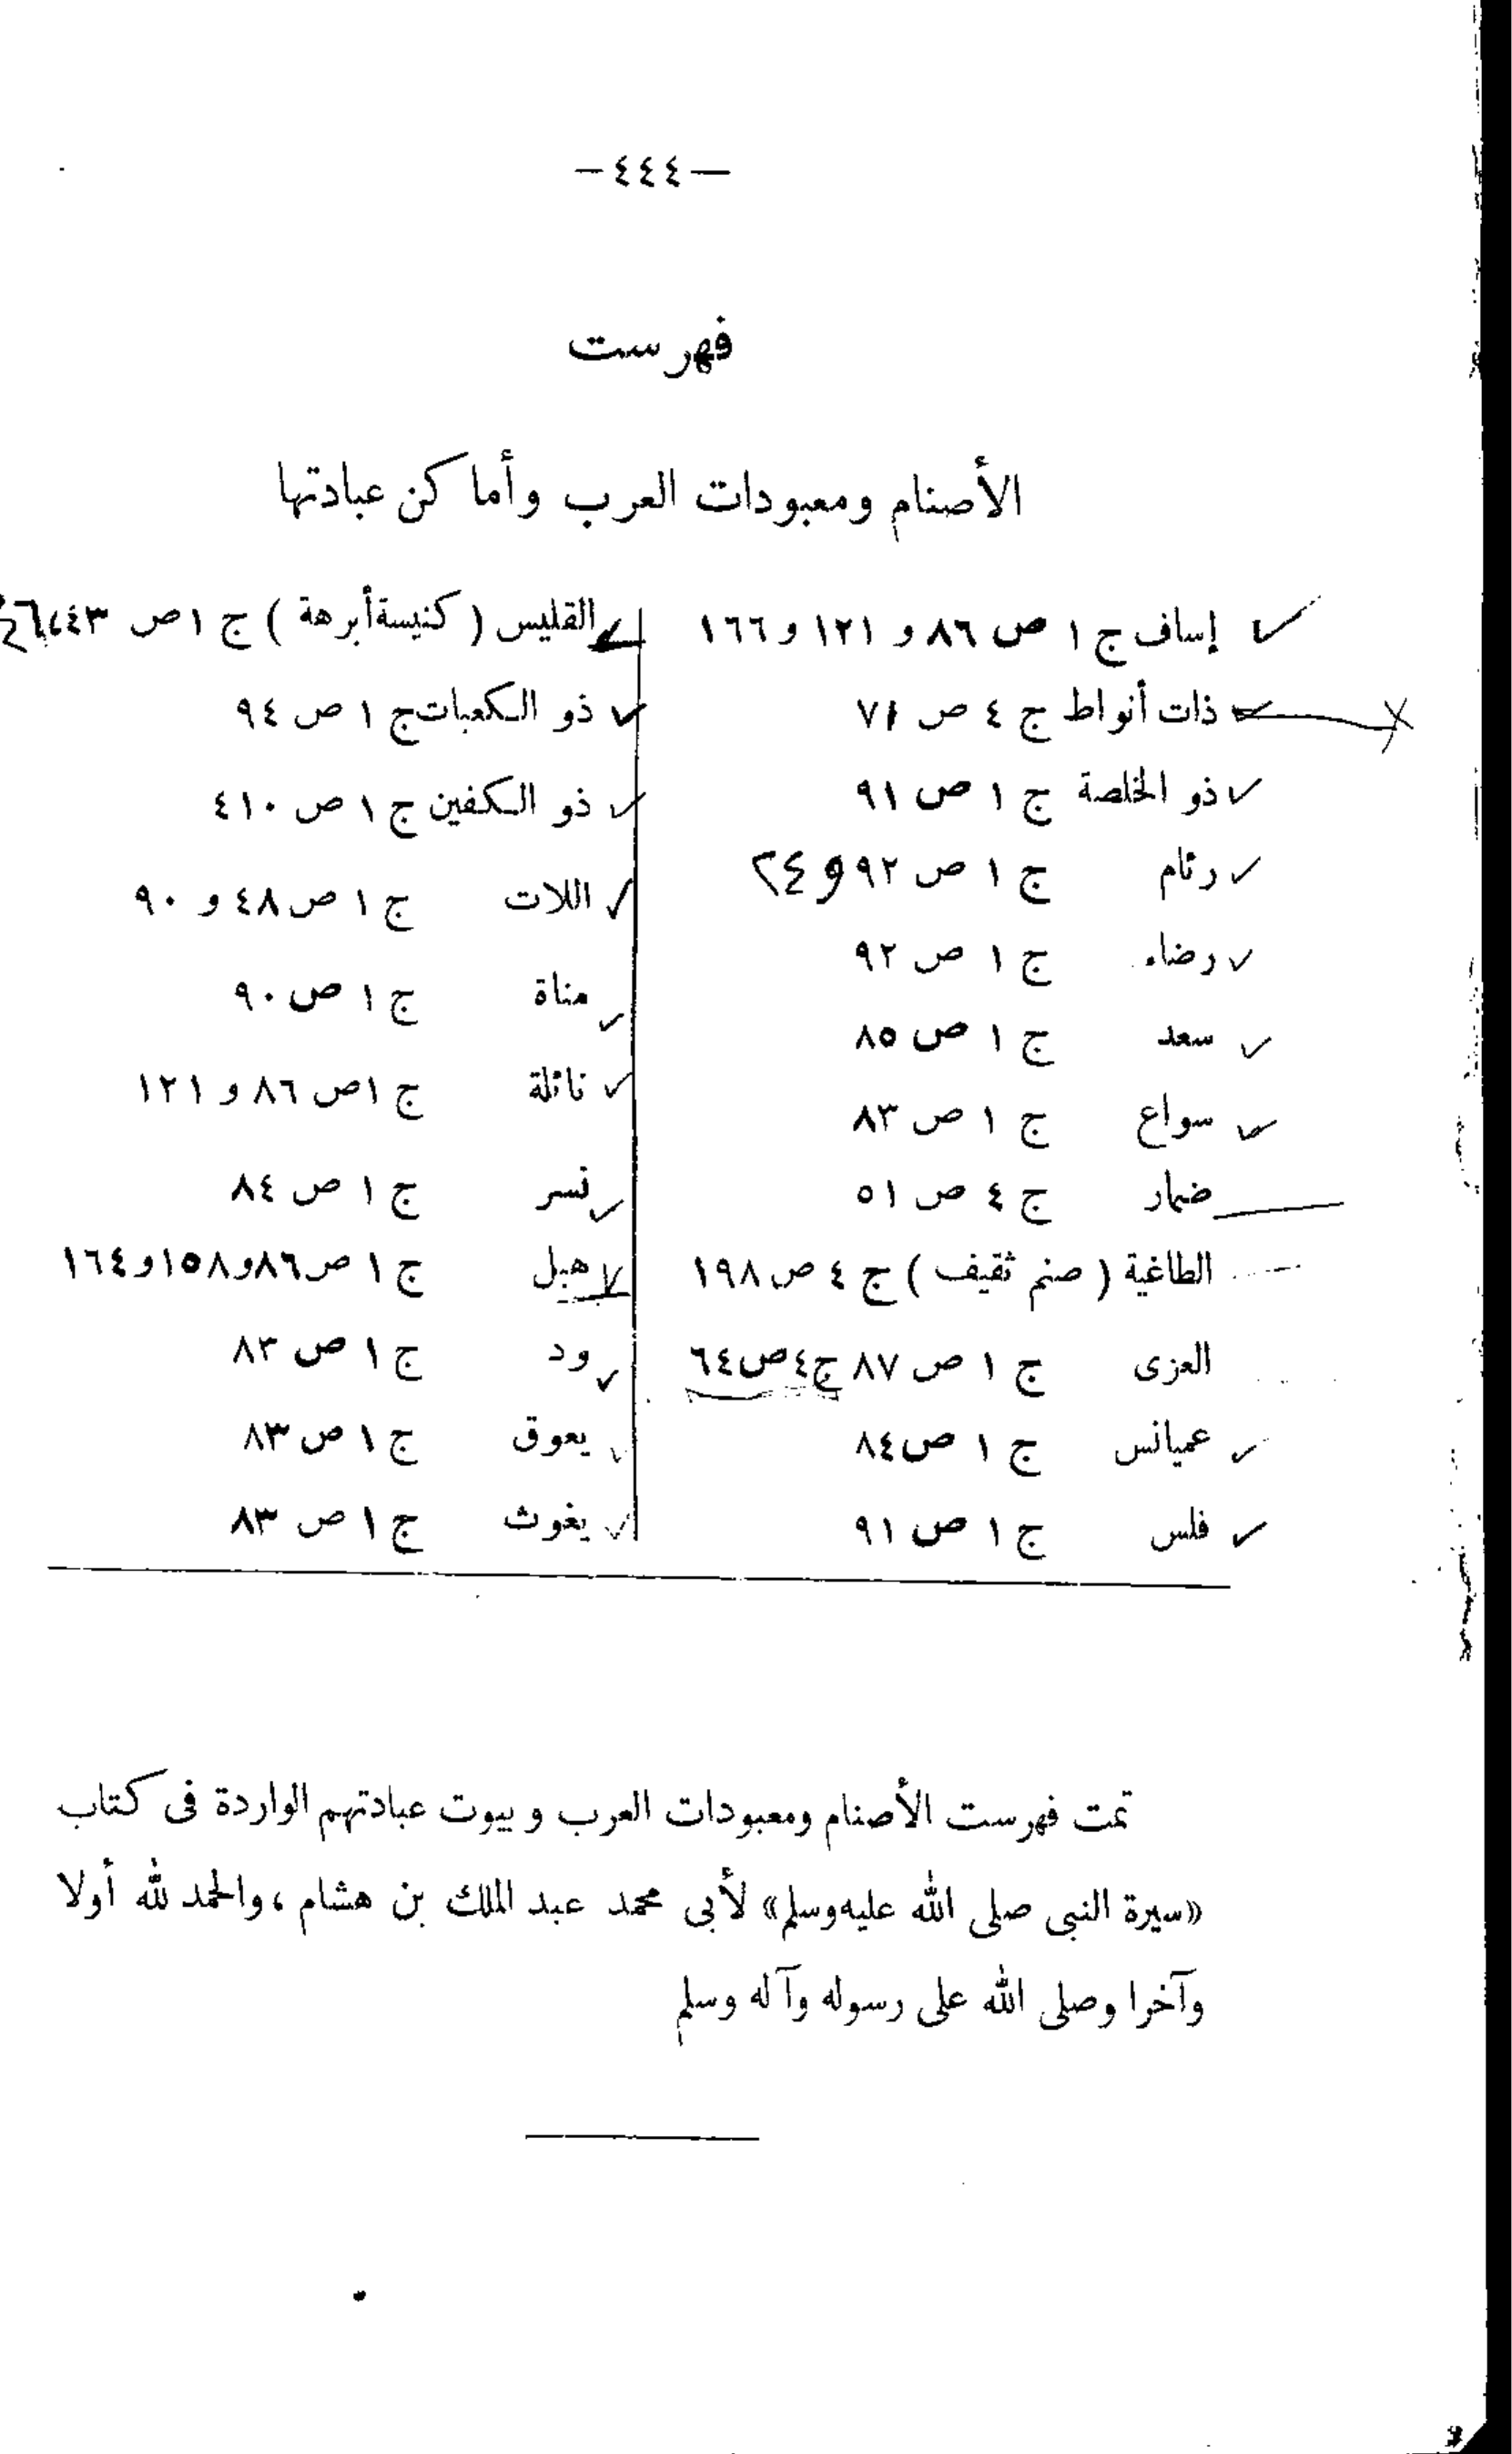 — ٤٤٤ —
فهرست
الأصنام ومعبودات العرب وأماكن عبادتها
إساف ج ١ ص ٨٦ و ١٢١ و ١٦٦
ذات أنواط ج ٤ ص ٧١
ذو الخلصة ج ١ ص ٩١
رئام ج ١ ص ٩٢ و ٢٤
رضاء ج ١ ص ٩٢
سعد ج ١ ص ٨٥
سواع ج ١ ص ٨٣
ضمار ج ٤ ص ٥١
الطاغية ( صنم ثقيف ) ج ٤ ص ١٩٨
العزى ج ١ ص ٨٧ ج ٤ ص ٦٤
عميانس ج ١ ص ٨٤
فلس ج ١ ص ٩١
القليس ( كنيسة أبرهة ) ج ١ ص ٤٣
ذو الكعبات ج ١ ص ٩٤
ذو الكفين ج ١ ص ٤١٠
اللات ج ١ ص ٤٨ و ٩٠
مناة ج ١ ص ٩٠
نائلة ج ١ ص ٨٦ و ١٢١
نسر ج ١ ص ٨٤
هبل ج ١ ص ٨٦ و ١٥٨ و ١٦٤
ود ج ١ ص ٨٣
يعوق ج ١ ص ٨٣
يغوث ج ١ ص ٨٣
تمت فهرست الأصنام ومعبودات العرب وبيوت عبادتهم الواردة فى كتاب
«سيرة النبى صلى الله عليه وسلم» لأبى محمد عبد الملك بن هشام ، والحمد لله أولا
وآخرا وصلى الله على رسوله وآله وسلم